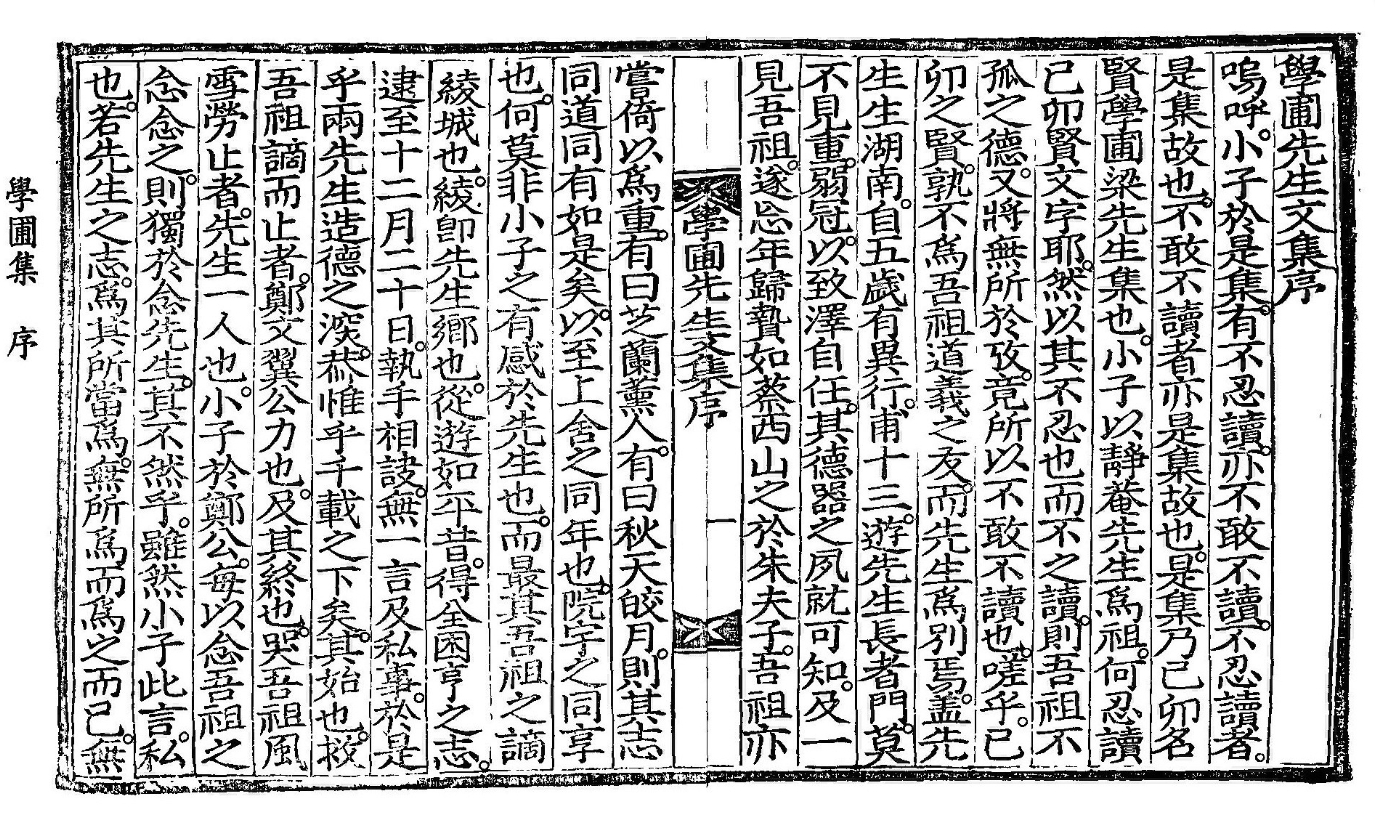 學圃先生文集序
嗚呼。小子於是集。有不忍讀。亦不敢不讀。不忍讀者。
是集故也。不敢不讀者亦是集故也。是集乃己卯名
賢學圃梁先生集也。小子以靜菴先生爲祖。何忍讀
己卯賢文字耶。然以其不忍也而不之讀。則吾祖不
孤之德。又將無所於攷。竟所以不敢不讀也。嗟乎。己
卯之賢。孰不爲吾祖道義之友。而先生爲別焉。盖先
生生湖南。自五歲有異行。甫十三。遊先生長者門。莫
不見重。弱冠。以致澤自任。其德器之夙就可知。及一
見吾祖。遂忘年歸贄如蔡西山之於朱夫子。吾祖亦
學圃先生文集序
一
嘗倚以爲重。有曰芝蘭薰人。有曰秋天皎月。則其志
同道同有如是矣。以至上舍之同年也。院宇之同享
也。何莫非小子之有感於先生也。而最其吾祖之謫
綾城也。綾卽先生鄕也。從遊如平昔。得全困亨之志。
逮至十二月二十日。執手相訣。無一言及私事。於是
乎兩先生造德之深。恭惟乎千載之下矣。其始也。救
吾祖謫而止者。鄭文翼公力也。及其終也。哭吾祖風
雪勞止者。先生一人也。小子於鄭公。每以念吾祖之
念念之。則獨於念先生。其不然乎。雖然小子此言。私
也。若先生之志。爲其所當爲。無所爲而爲之而已。無
學圃集 序